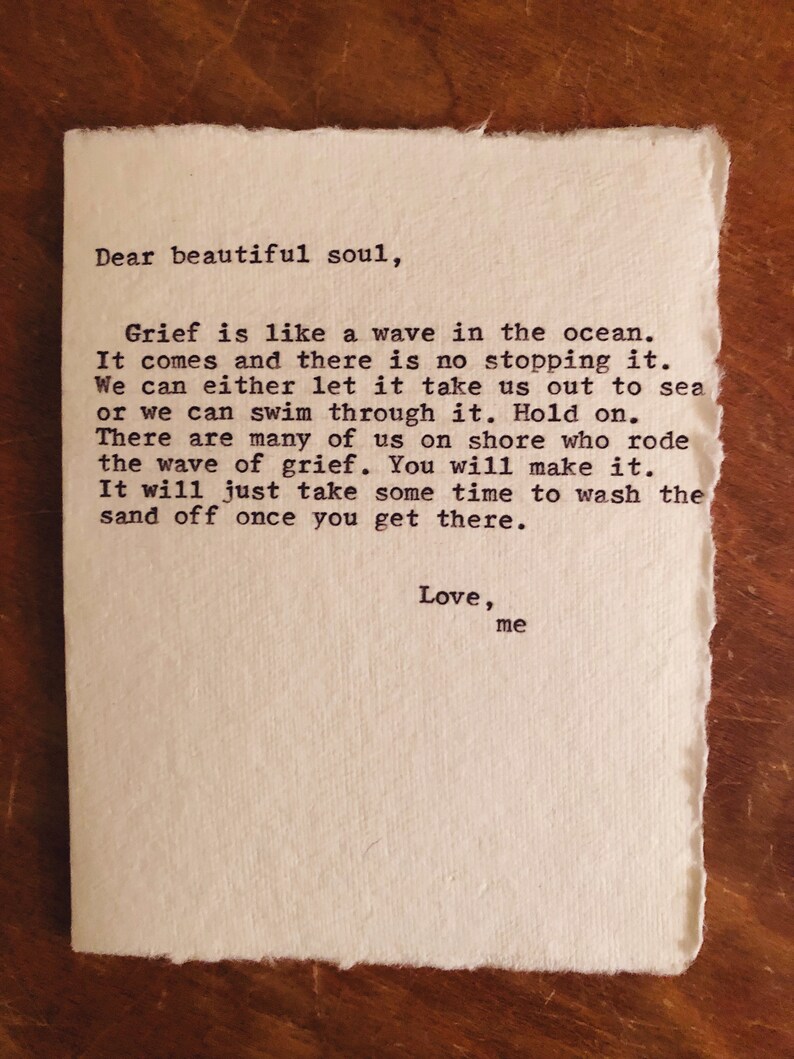 Dear beautiful soul,
Grief is like a wave in the ocean.
It comes and there is no stopping it.
We can either let it take us out to sea
or we can swim through it. Hold on.
There are many of us on shore who rode
the wave of grief. You will make it.
It will just take some time to wash the
sand off once you get there.
Love,
me